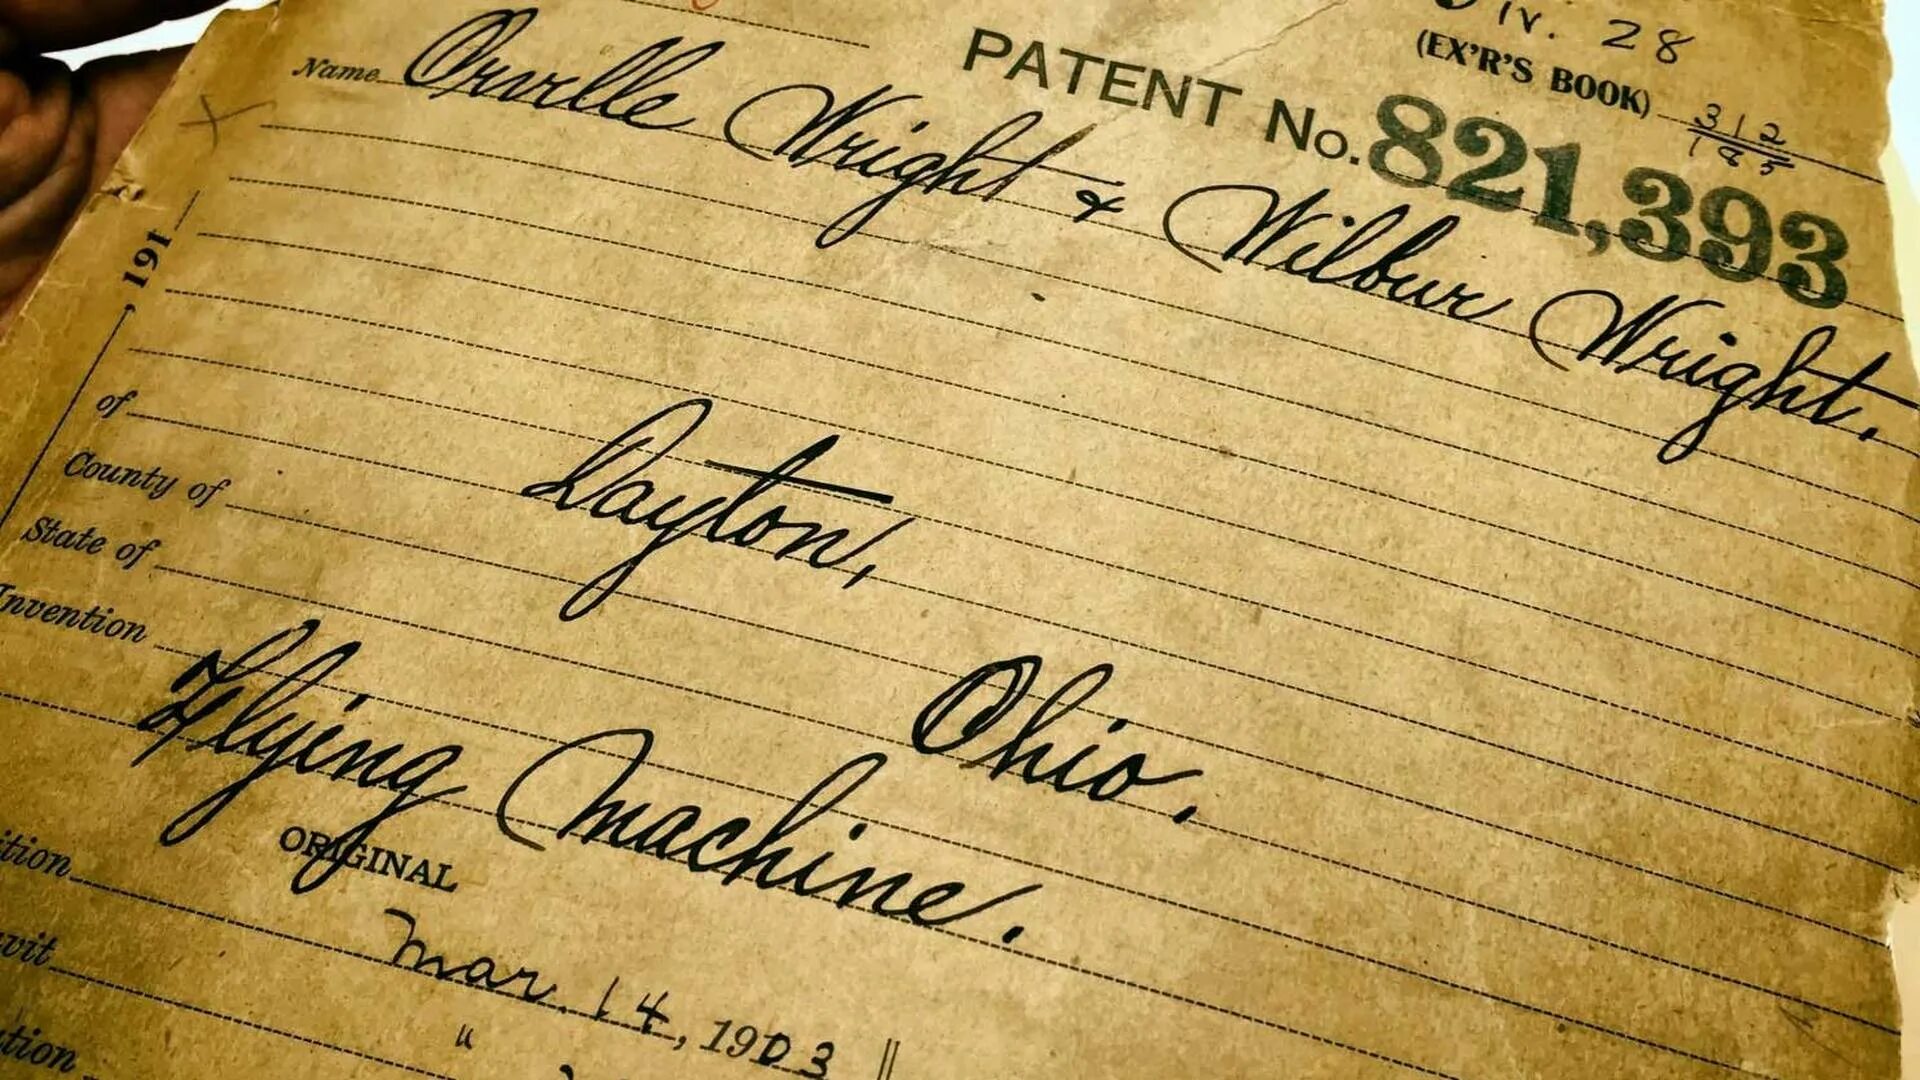 Div. 28
(EX'R'S BOOK) 312
185
PATENT No. 821,393
Name Orville Wright & Wilbur Wright.
, 191
of Dayton,
County of
State of Ohio.
Invention Flying Machine.
ORIGINAL
Mar. 14, 1903
"